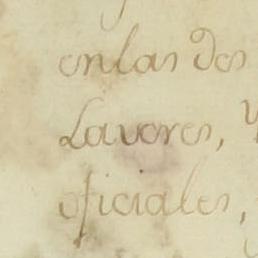 enlas dos
Lavores, y
oficiales,